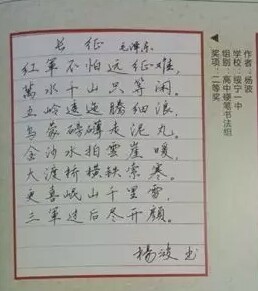 长征 毛泽东
红軍不怕远征难，
萬水千山只等闲。
五岭逶迤腾细浪，
乌蒙磅礴走泥丸。
金沙水拍雲崖暖，
大渡桥横铁索寒。
更喜岷山千里雪，
三軍过后尽开颜。
杨波书
作者：杨波
学校：绥宁一中
组别：高中硬笔书法组
奖项：二等奖